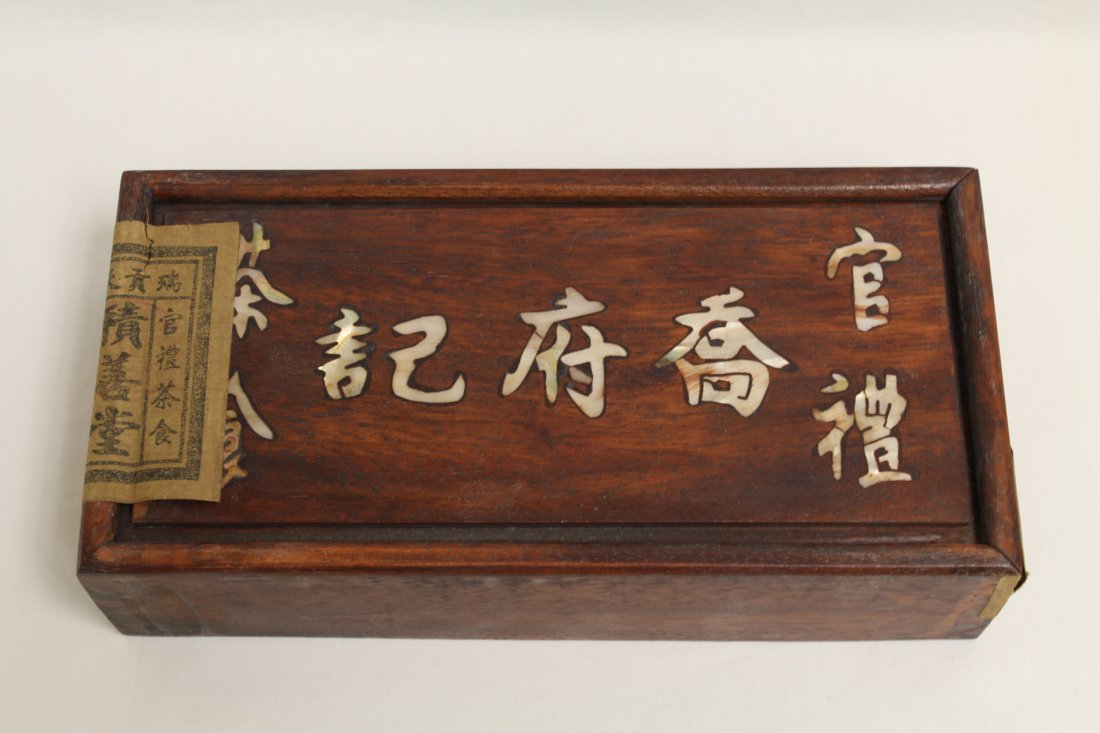 官禮
喬府記
茶食
瑞貢
官禮茶食
積善堂